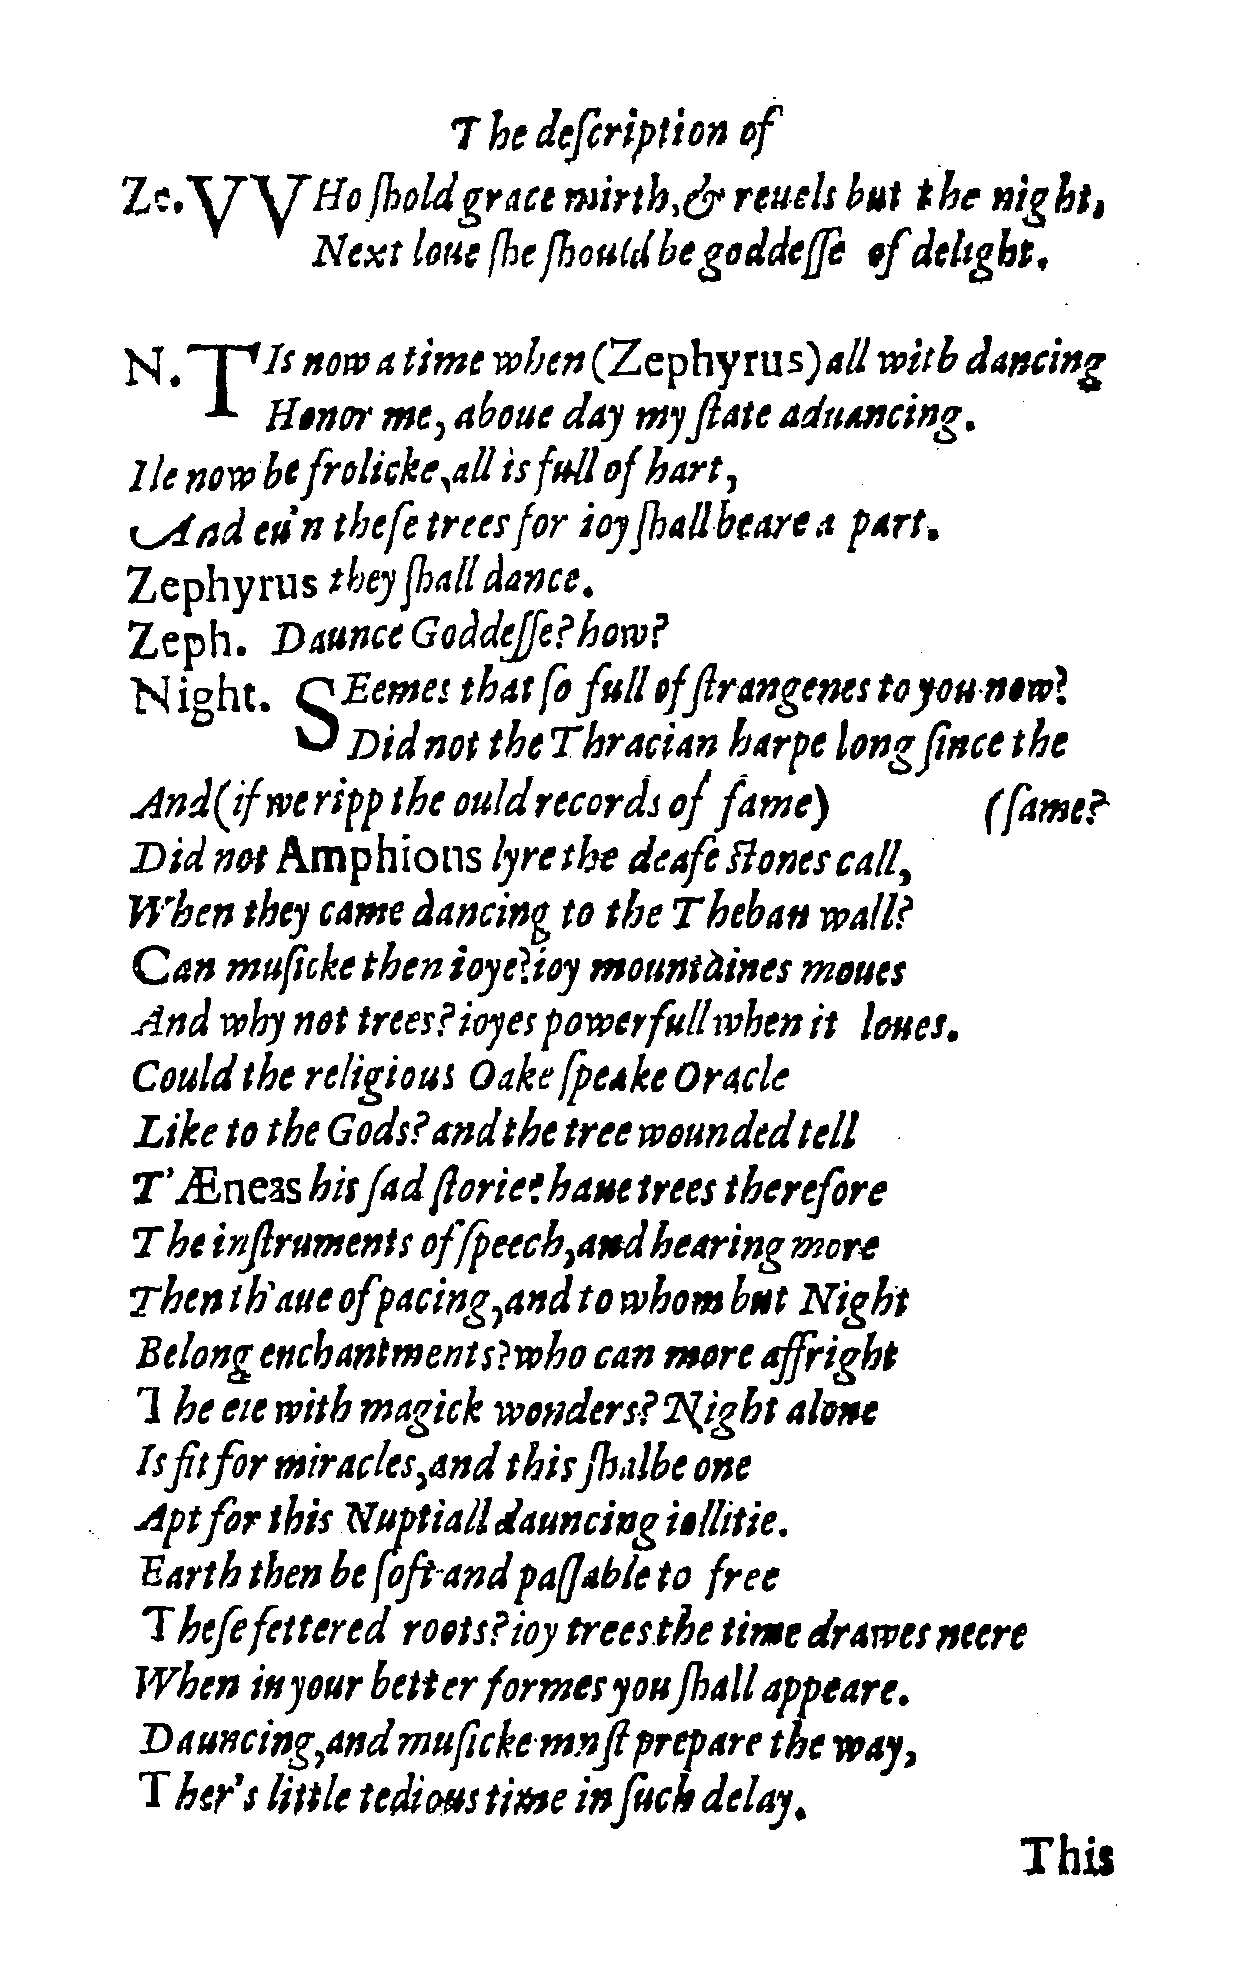 The deſcription of
Ze. VVHo ſhold grace mirth, & reuels but the night,
Next loue ſhe ſhould be goddeſſe of delight.
N. TIs now a time when (Zephyrus) all with dancing
Honor me, aboue day my ſtate aduancing.
Ile now be frolicke, all is full of hart,
And eu'n theſe trees for ioy ſhall beare a part.
Zephyrus they ſhall dance.
Zeph. Daunce Goddeſſe? how?
Night. SEemes that ſo full of ſtrangenes to you now?
Did not the Thracian harpe long ſince the
And (if we ripp the ould records of fame) (ſame?
Did not Amphions lyre the deafe ſtones call,
When they came dancing to the Theban wall?
Can muſicke then ioye? ioy mountaines moues
And why not trees? ioyes powerfull when it loues.
Could the religious Oake ſpeake Oracle
Like to the Gods? and the tree wounded tell
T'Æneas his ſad ſtorie? haue trees therefore
The inſtruments of ſpeech, and hearing more
Then th'aue of pacing, and to whom but Night
Belong enchantments? who can more affright
The eie with magick wonders? Night alone
Is fit for miracles, and this ſhalbe one
Apt for this Nuptiall dauncing iollitie.
Earth then be ſoft and paſſable to free
Theſe fettered roots? ioy trees the time drawes neere
When in your better formes you ſhall appeare.
Dauncing, and muſicke mnſt prepare the way,
Ther's little tedious time in ſuch delay.
This